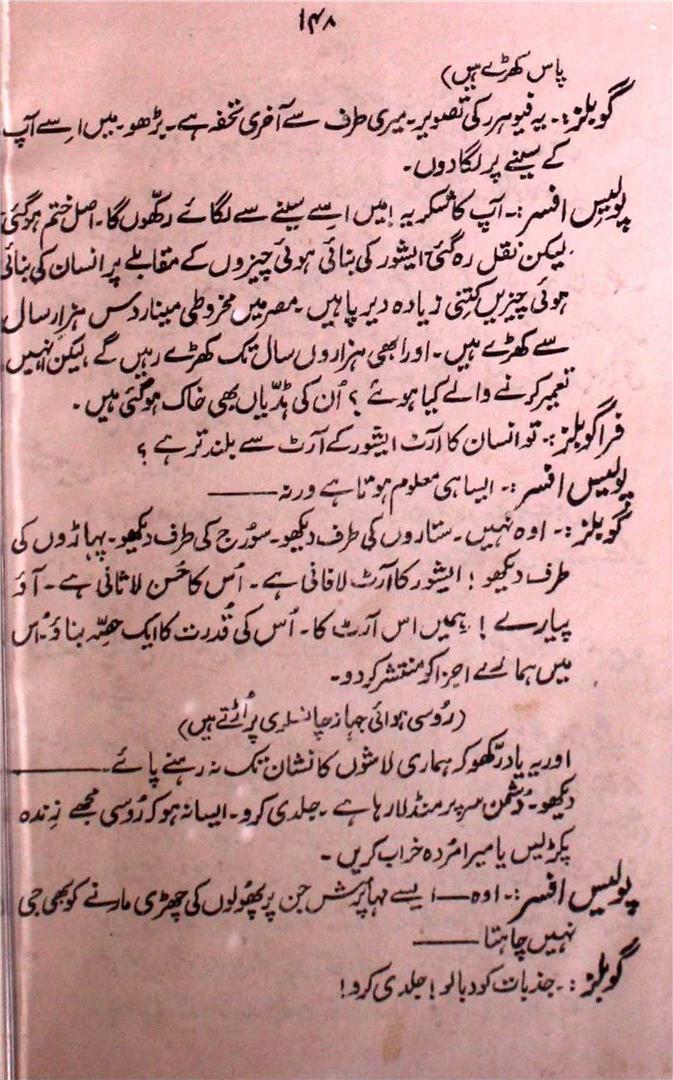 ۱۴۸
پاس کھڑے ہیں)
گوبلز:۔ یہ فیوہرر کی تصویر۔ میری طرف سے آخری تحفہ ہے۔ بڑھو۔ میں اسے آپ
کے سینے پر لگا دوں۔
پولیس افسر:۔ آپ کا شکریہ! میں اسے سینے سے لگائے رکھوں گا۔ اصل ختم ہو گئی
لیکن نقل رہ گئی۔ ایشور کی بنائی ہوئی چیزوں کے مقابلے پر انسان کی بنائی
ہوئی چیزیں کتنی زیادہ دیرپا ہیں۔ مصر میں مخروطی مینار دس ہزار سال
سے کھڑے ہیں۔ اور ابھی ہزاروں سال تک کھڑے رہیں گے لیکن انہیں
تعمیر کرنے والے کیا ہوئے؟ اُن کی ہڈیاں بھی خاک ہو گئی ہیں۔
فرا گوبلز:۔ تو انسان کا آرٹ ایشور کے آرٹ سے بلند تر ہے؟
پولیس افسر:۔ ایسا ہی معلوم ہوتا ہے ورنہ ——
گوبلز:۔ اوہ نہیں۔ ستاروں کی طرف دیکھو۔ سورج کی طرف دیکھو۔ پہاڑوں کی
طرف دیکھو! ایشور کا آرٹ لافانی ہے۔ اُس کا حُسن لاثانی ہے۔ آؤ
پیارے! ہمیں اس آرٹ کا۔ اُس کی قُدرت کا ایک حصّہ بناؤ۔ اُس
میں ہمارے اجزا کو منتشر کر دو۔
(رُوسی ہوائی جہاز چانسلری پر اُڑتے ہیں)
اور یہ یاد رکھو کہ ہماری لاشوں کا نشان تک نہ رہنے پائے ——
دیکھو۔ دُشمن سر پر منڈلا رہا ہے۔ جلدی کرو۔ ایسا نہ ہو کہ رُوسی مجھے زندہ
پکڑ لیں یا میرا مُردہ خراب کریں۔
پولیس افسر:۔ اوہ — ایسے مہاپُرش جن پر پھولوں کی چھڑی مارنے کو بھی جی
نہیں چاہتا ——
گوبلز:۔ جذبات کو دبا لو! جلدی کرو!